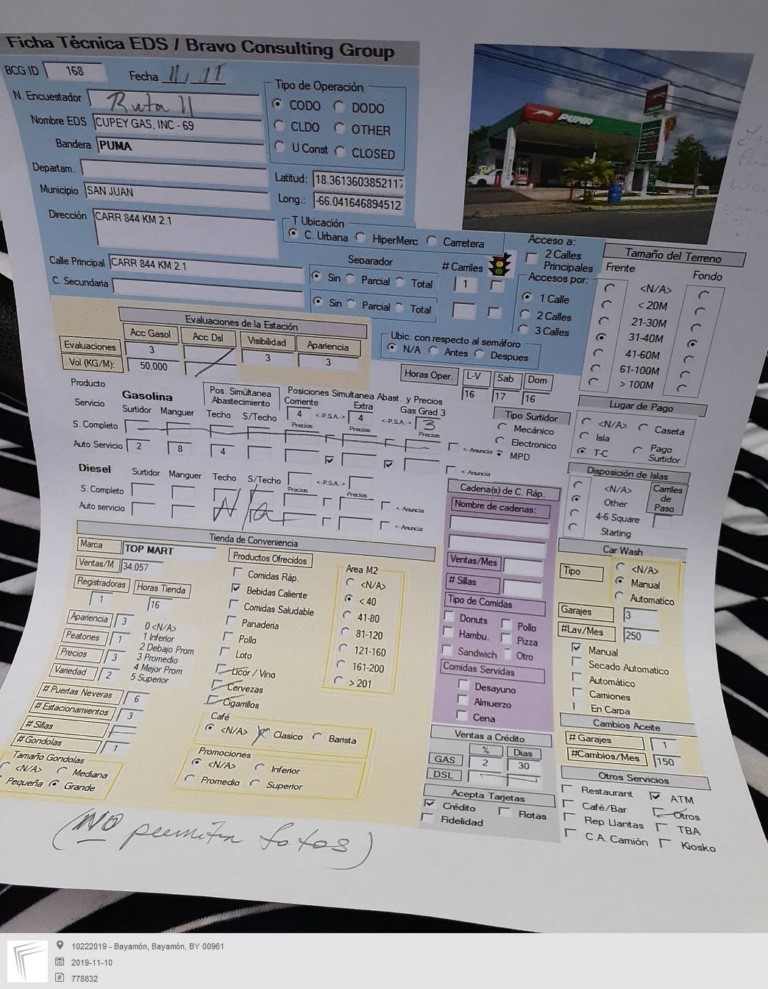 Ficha Técnica EDS / Bravo Consulting Group
BCG ID 168 Fecha 11/11
N. Encuestador Ruta 11
Nombre EDS CUPEY GAS, INC - 69
Bandera PUMA
Departam.
Municipio SAN JUAN
Dirección CARR 844 KM 2.1
Calle Principal CARR 844 KM 2.1
C. Secundaria
Tipo de Operación
CODO DODO
CLDO OTHER
U Const CLOSED
Latitud: 18.3613603852117
Long.: -66.041646894512
T Ubicación
C. Urbana HiperMerc Carretera
Separador # Carriles
Sin Parcial Total 1
Sin Parcial Total
PUMA
Acceso a:
2 Calles Principales
Accesos por:
1 Calle
2 Calles
3 Calles
Tamaño del Terreno
Frente Fondo
<N/A>
< 20M
21-30M
31-40M
41-60M
61-100M
> 100M
Evaluaciones de la Estación
Acc Gasol Acc Dsl Visibilidad Apariencia
Evaluaciones 3 3 3
Vol (KG/M): 50.000
Ubic. con respecto al semáforo
N/A Antes Despues
Horas Oper. L-V Sab Dom
16 17 16
Producto
Servicio
Gasolina
Surtidor Manguer
Pos. Simúltanea Abastecimiento
Techo S/Techo
Posiciones Simultanea Abast. y Precios
Corriente Extra Gas Grad 3
4 <-P.S.A.-> 4 <-P.S.A.-> 3
Precios Precios Precios
S. Completo
Auto Servicio 2 8 4
<- Anuncia
Tipo Surtidor
Mecánico
Electronico
MPD
Lugar de Pago
<N/A> Caseta
Isla Pago Surtidor
T-C
Diesel
Surtidor Manguer Techo S/Techo <-P.S.A.->
Precios Precios
S. Completo
Auto servicio N/a
<- Anuncia
<- Anuncia
Disposición de Islas
<N/A>
Other
4-6 Square
Starting
Carriles de Paso
Tienda de Conveniencia
Marca TOP MART
Ventas/M 34.057
Registradoras Horas Tienda
1 16
Apariencia 3
Peatones 1
Precios 3
Variedad 2
0 <N/A>
1 Inferior
2 Debajo Prom
3 Promedio
4 Mejor Prom
5 Superior
# Puertas Neveras 6
# Estacionamientos 3
# Sillas
# Gondolas 1
Tamaño Gondolas
<N/A> Mediana
Pequeña Grande
Productos Ofrecidos
Comidas Ráp.
Bebidas Caliente
Comidas Saludable
Panaderia
Pollo
Loto
Licor / Vino
Cervezas
Cigarrillos
Area M2
<N/A>
< 40
41-80
81-120
121-160
161-200
> 201
Café
<N/A> Clasico Barista
Promociones
<N/A> Inferior
Promedio Superior
Cadena(s) de C. Ráp.
Nombre de cadenas:
Ventas/Mes
# Sillas
Tipo de Comidas
Donuts Pollo
Hambu. Pizza
Sandwich Otro
Comidas Servidas
Desayuno
Almuerzo
Cena
Ventas a Crédito
% Dias
GAS 2 30
DSL
Acepta Tarjetas
Crédito Flotas
Fidelidad
Car Wash
Tipo
<N/A>
Manual
Automatico
Garajes 3
#Lav/Mes 250
Manual
Secado Automatico
Automático
Camiones
En Carpa
Cambios Aceite
# Garajes 1
#Cambios/Mes 150
Otros Servicios
Restaurant ATM
Café/Bar Otros
Rep Llantas TBA
C.A. Camión Kiosko
(NO permiten fotos)
10222019 - Bayamón, Bayamón, BY 00961
2019-11-10
778832